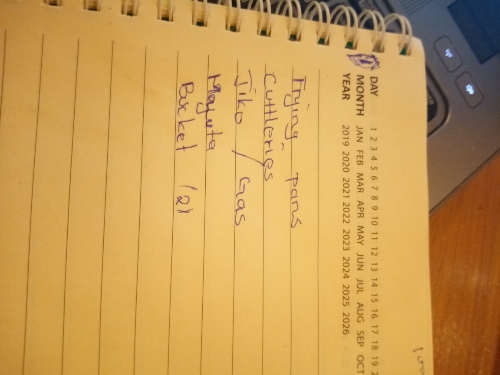 DAY 1 2 3 4 5 6 7 8 9 10 11 12 13 14 15 16 17 18 19
MONTH JAN FEB MAR APR MAY JUN JUL AUG SEP OCT
YEAR 2019 2020 2021 2022 2023 2024 2025 2026
Frying pans
Cuttleries
Jiko / Gas
Mafuta
Bucket (2)